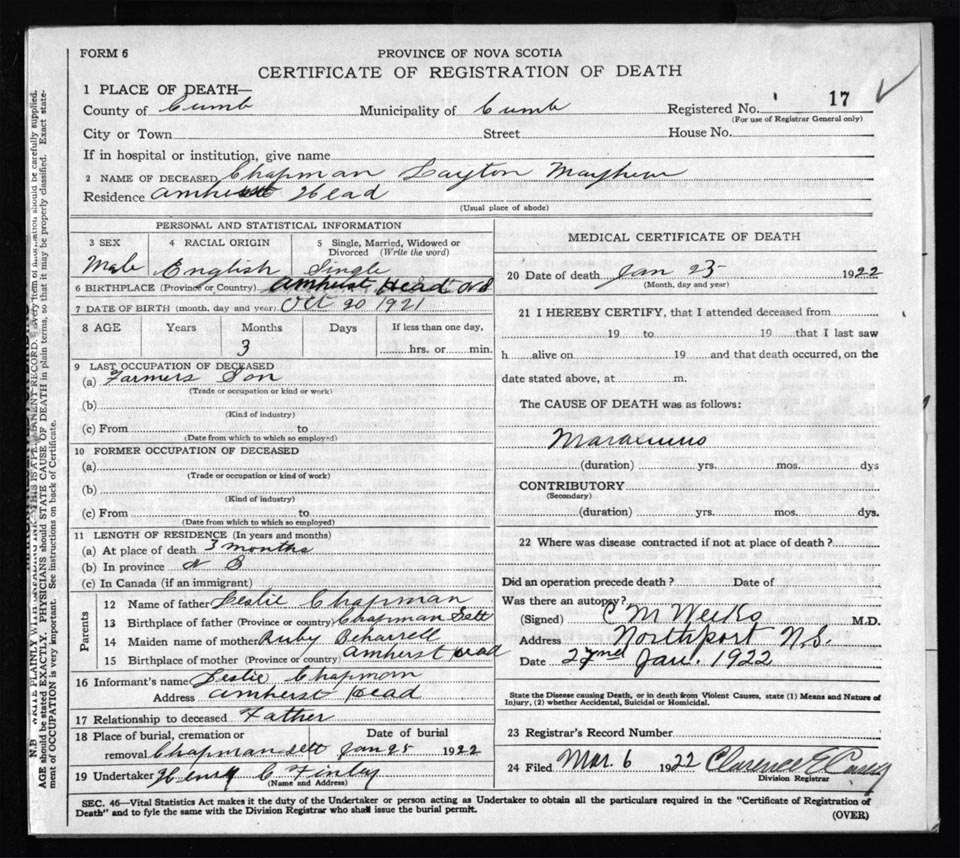 FORM 6
PROVINCE OF NOVA SCOTIA
CERTIFICATE OF REGISTRATION OF DEATH
1 PLACE OF DEATH—
County of Cumb Municipality of Cumb Registered No. 17
(For use of Registrar General only)
City or Town Street House No.
If in hospital or institution, give name
2 NAME OF DECEASED Chapman Layton Mayhew
Residence Amherst Head
(Usual place of abode)
PERSONAL AND STATISTICAL INFORMATION
3 SEX 4 RACIAL ORIGIN 5 Single, Married, Widowed or Divorced (Write the word)
Male English Single
6 BIRTHPLACE (Province or Country) Amherst Head N S
7 DATE OF BIRTH (month, day and year) Oct 20 1921
8 AGE Years Months Days If less than one day,
3 hrs. or min.
9 LAST OCCUPATION OF DECEASED
(a) Farmers Son
(Trade or occupation or kind or work)
(b)
(Kind of industry)
(c) From to
(Date from which to which so employed)
10 FORMER OCCUPATION OF DECEASED
(a)
(Trade or occupation or kind of work)
(b)
(Kind of industry)
(c) From to
(Date from which to which so employed)
11 LENGTH OF RESIDENCE (In years and months)
(a) At place of death 3 months
(b) In province N S
(c) In Canada (if an immigrant)
Parents
12 Name of father Leslie Chapman
13 Birthplace of father (Province or country) Chapman Sett
14 Maiden name of mother Ruby Beharrell
15 Birthplace of mother (Province or country) Amherst Head
16 Informant's name Leslie Chapman
Address Amherst Head
17 Relationship to deceased Father
18 Place of burial, cremation or Date of burial
removal Chapman Sett Jan 25 1922
19 Undertaker Henry C Finley
(Name and Address)
MEDICAL CERTIFICATE OF DEATH
20 Date of death Jan 23 1922
(Month, day and year)
21 I HEREBY CERTIFY, that I attended deceased from
19 to 19 that I last saw
h alive on 19 and that death occurred, on the
date stated above, at m.
The CAUSE OF DEATH was as follows:
(duration) yrs. mos. dys
CONTRIBUTORY
(Secondary)
(duration) yrs. mos. dys.
22 Where was disease contracted if not at place of death?
Did an operation precede death? Date of
Was there an autopsy?
(Signed) C M Weeks M.D.
Address Northport N.S.
Date Jan. 1922
State the Disease causing Death, or in death from Violent Causes, state (1) Means and Nature of
Injury, (2) whether Accidental, Suicidal or Homicidal.
23 Registrar's Record Number
24 Filed Mar. 6 1922 Clarence E Casey
Division Registrar
SEC. 46—Vital Statistics Act makes it the duty of the Undertaker or person acting as Undertaker to obtain all the particulars required in the "Certificate of Registration of
Death" and to fyle the same with the Division Registrar who shall issue the burial permit.
(OVER)
AGE should be stated EXACTLY. PHYSICIANS should STATE CAUSE OF DEATH in plain terms, so that it may be properly classified. Exact state-
ment of OCCUPATION is very important. See instructions on back of Certificate.